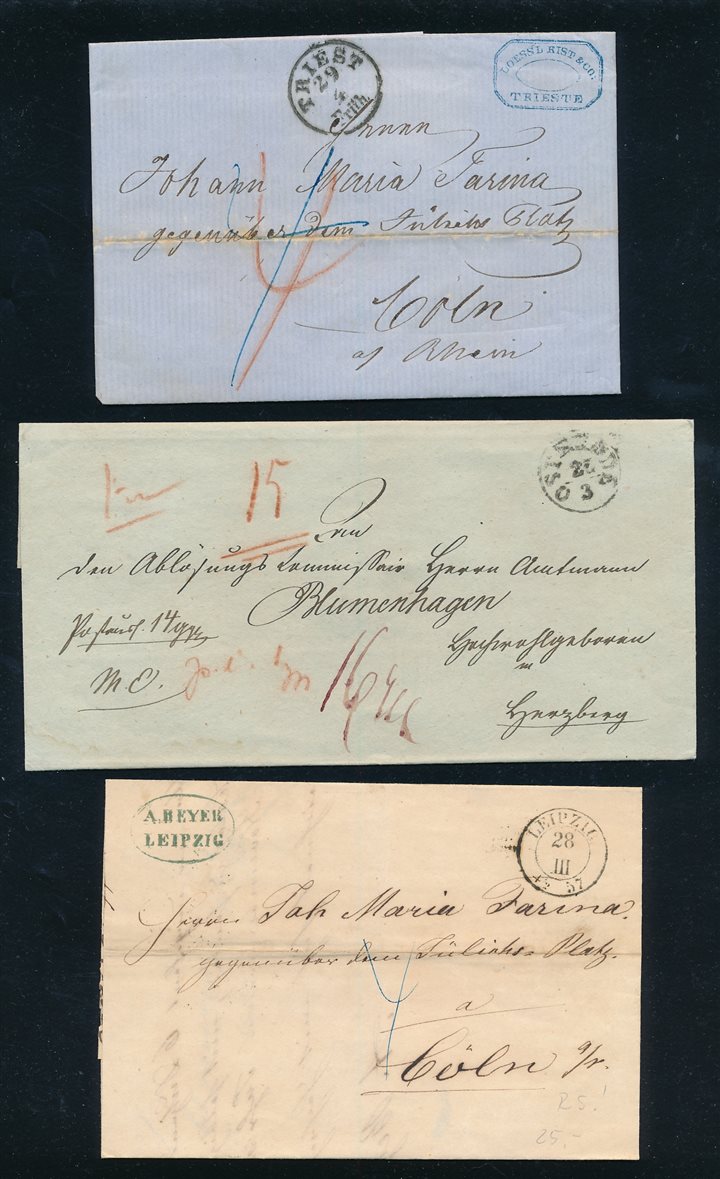 TRIEST
29
4
Früh.
LOESSL RIST & CO.
TRIESTE
Herrn
Johann Maria Farina
gegenüber dem Jülichs Platz
Cöln
a/ Rhein
4
15
22
3
den Ablösungs Commissair Herrn Amtmann
Blumenhagen
Hochwohlgeboren
in
Herzberg
M. C.
16
A. BEYER
LEIPZIG
LEIPZIG
28
III
57
Herrn Joh Maria Farina.
gegenüber dem Jülichs-Platz.
4
a
Cöln a/r.
25!
25.-